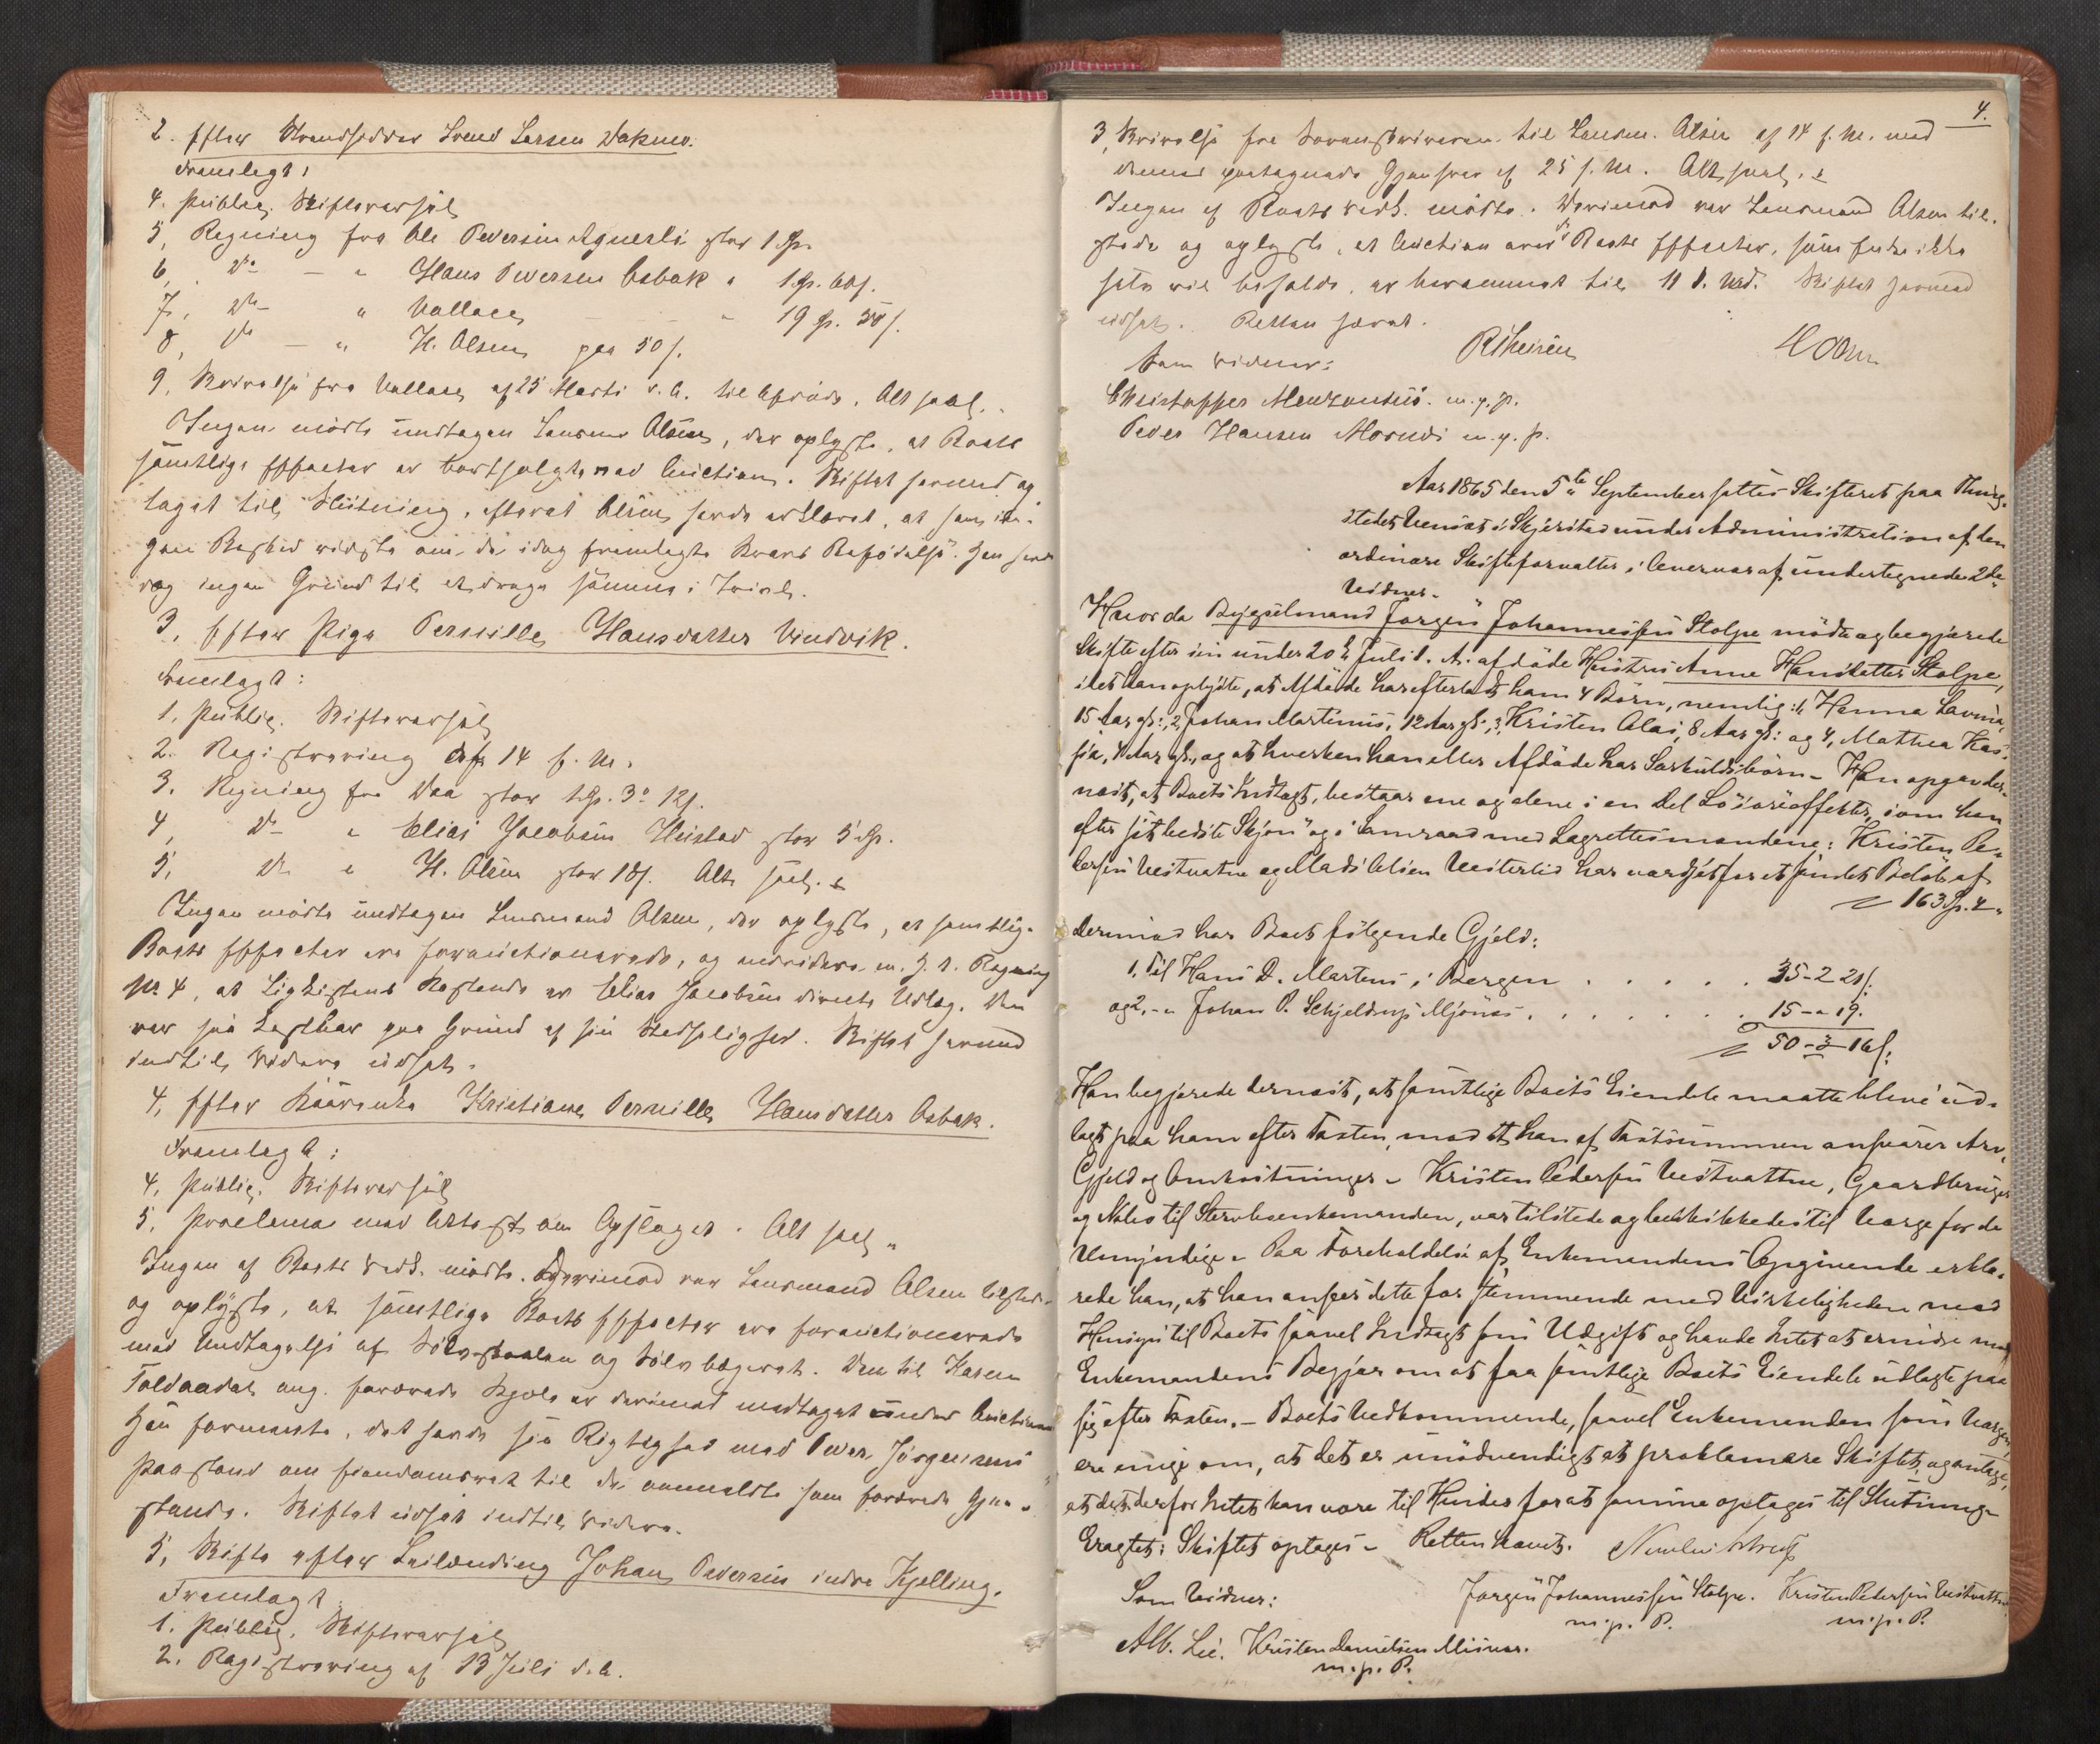 2. Efter Strandsidder Svend Larsen Vaknes.
Fremlagt:
4. Public. Skiftevarsel
5, Regning fra Ole Pedersen Agnerli stor 1 Sp.
6, Do — " Hans Pedersen Osbak " 1 Sp. 60 s.
7, Do — " Vallace — — " 19 Sp. 50 s.
8, Do — " H. Olsen paa 50 s.
9, Skrivelse fra Vallace af 25 Marts d. A. til Afdøde. Alt saal.
Ingen mødte undtagen Lensmd Olsen, der oplyste, at Boets
samtlige Effecter er bortsolgte ved Auction. Skiftet hermed op
taget til Slutning, efterat Olsen havde erklæret, at han in-
gen Besked vidste om de idag fremlagte Kravs Rigtighed. Han havde
dog ingen Grund til at drage samme i Tvivl.
3, Efter Pige Pernille Hansdatter Vindvik.
Fremlagt:
1, Public. Skiftevarsel
2. Registrering af 14 f. M.
3. Regning fra Daa stor 1 Sp. 3 o 12 s.
4, Do " Elias Jacobsen Heistad stor 5 Sp.
5, Do " H. Olsen stor 18 s. Alt saal.
Ingen mødte undtagen Lensmand Olsen, der oplyste, at samtlige
Boets Effecter ere forauctionerede, og endvidere m. H. t. Regning
No 4, at Ligkistens Kostende er Elias Jacobsens directe Udlæg. Den
var saa kostbar paa Grund af sin Vedholighed. Skiftet hermed
indtil Videre udsat.
4, Efter Kaarenke Kristiane Pernille Hansdatter Osbak.
Fremlagt:
4, Public. Skiftevarsel
5. Proclama med Attest om Opslaget. Alt saal.
Ingen af Boets Vedk. mødte. Derimod var Lensmand Olsen tilstede
og oplyste, at samtlige Boets Effecter ere forauctionerede
med Undtagelse af Sølvskaalen og Sølvbægeret. Den til Karen
Toldaadal ang. forærede Kjole er derimod medtaget under Auctionen
Han formente, det havde sin Rigtighed med Peder Jørgensens
Paastand om Eiendomsret til de anmeldte ham forærede Gjen-
stande. Skiftet udsat indtil Videre.
5, Skifte efter Leilænding Johan Pedersen indre Kjelling.
Fremlagt
1. Public. Skiftevarsel
2. Registrering af 13 Juli d. A.
4.
3, Skrivelse fra Sorenskriveren til Lensm. Olsen af 14 f. M. med
dennes paategnede Gjensvar af 25 f. M. Alt saal.
Ingen af Boets Vedk. mødte. Derimod var Lensmand Olsen til-
stede og oplyste, at Auction over Boets Effecter, som Enke ikke
selv vil beholde, er berammet til 11 d. Md. Skiftet hermed
udsat. Retten hævet.
Som Vidner:
Christopher m. p. P.
Peder Hansen Mosnes m. p. P.
Aar 1865 den 5te September sattes Skifteret paa Thing-
stedet Venset i Skjerstad under Administration af den
ordinære Skifteforvalter, i Overvær af undertegnede 2de
Vidner.
Hvor da Bygselmand Jørgen Johannessen Stolpe mødte og begjærede
Skifte efter sin under 20de Juli d. A. afdøde Hustru Anne Hansdatter Stolpe,
idet han oplyste, at Afdøde har efterladt ham 4 Børn, nemlig: 1, Hanna Lavina,
15 Aar gl:, 2, Johan Martinus, 12 Aar gl:, 3, Kristen Olai, 8 Aar gl: og 4, Mathea Kas-
pia, 4 Aar gl:, og at hverken han eller Afdøde har Særkuldsbørn – Han opgav der-
næst, at Boets Indtægt, bestaar ene og alene i en Del Løsøreeffekter, som han
efter sit bedste Skjøn og i Samraad med Lagrettesmændene: Kristen Pe-
dersen Vestvatne og Mads Olsen Vesterlid har værdsat for et samlet Beløb af
163 Sp. 4 "
derimod har Boet følgende Gjeld:
1. Til Hans D. Martens i Bergen . . . . . 35 - 2 21 s.
og 2, – " Johan P. Schjeldrup Mjønes . . . . . . . 15 - " 19.
50 - 3 - 16 s.
Han begjærede dernæst, at samtlige Boets Eiendele maatte blive ud-
lagt paa ham efter Taxten, mod at han af Taxtsummen ansvarer Arv,
Gjeld og Omkostninger – Kristen Pedersen Vestvatne, Gaardbruger
og Nabo til Stervboenkemanden, var tilstede og beskikkedes til Værge for de
Umyndige – Paa Foreholdelse af Enkemandens Opgivende erklæ-
rede han, at han anseer dette for stemmende med Virkeligheden med
Hensyn til Boets saavel Indtægt som Udgift og havde Intet at erindre mod
Enkemandens Begjær om at faa samtlige Boets Eiendele udlagte paa
sig efter Taxten. – Boets Vedkommende, saavel Enkemanden som Værgen,
ere enige om, at det er unødvendigt at proklamere Skiftet, og antage,
at det derfor Intet kan være til Hinder for at samme optages til Slutning –
Eragtet: Skiftet optages – Retten hævet.
Som Vidner: Jørgen Johannessen Stolpe. Kristen Pedersen Vestvatne
m. p. P. m. p. P.
Alb. Lie. Kristen Danielsen Misvær.
m. p. P.